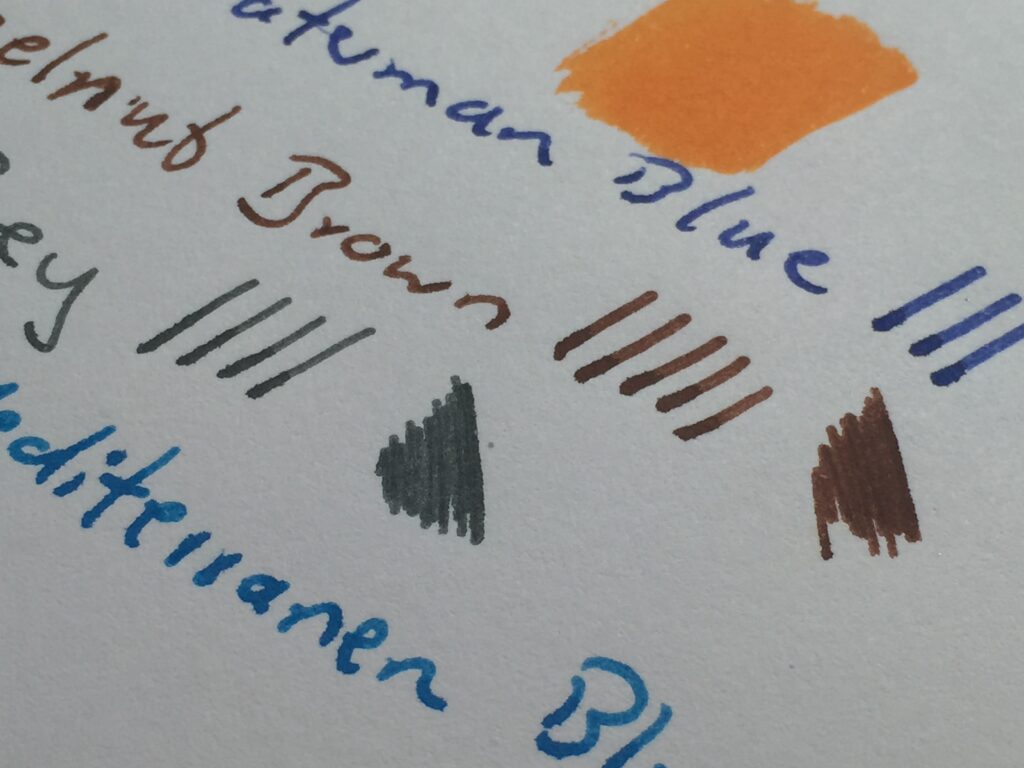 aterman Blue
elnut Brown
ey
editerranen Bl